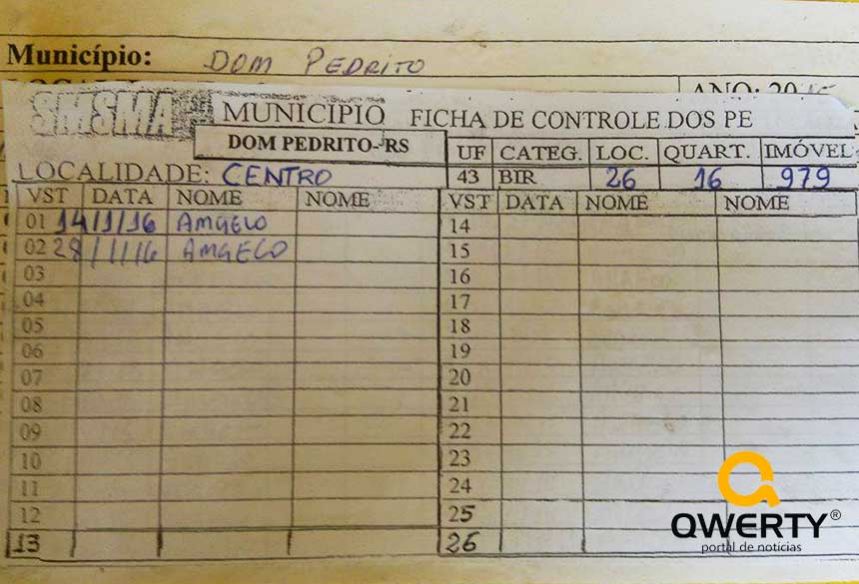 Município: DOM PEDRITO
ANO: 2016
SMSMA MUNICIPIO FICHA DE CONTROLE DOS PE
DOM PEDRITO-RS
UF CATEG. LOC. QUART. IMÓVEL
LOCALIDADE: CENTRO
43 BIR 26 16 979
VST DATA NOME NOME VST DATA NOME NOME
01 14/1/16 AMGELO 14
02 28/1/16 AMGELO 15
03 16
04 17
05 18
06 19
07 20
08 21
09 22
10 23
11 24
12 25
13 26
QWERTY®
portal de notícias